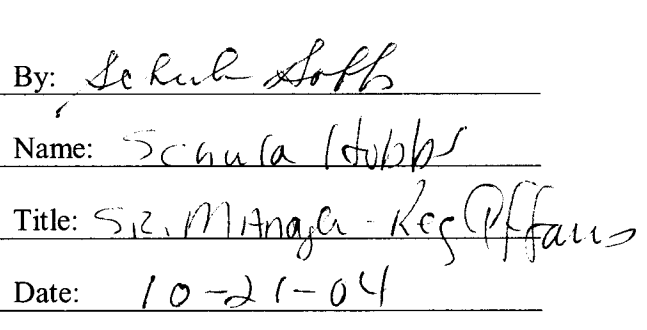 By: Schula Hobbs
Name: Schula Hobbs
Title: SR. Manager - Reg Affairs
Date: 10-21-04